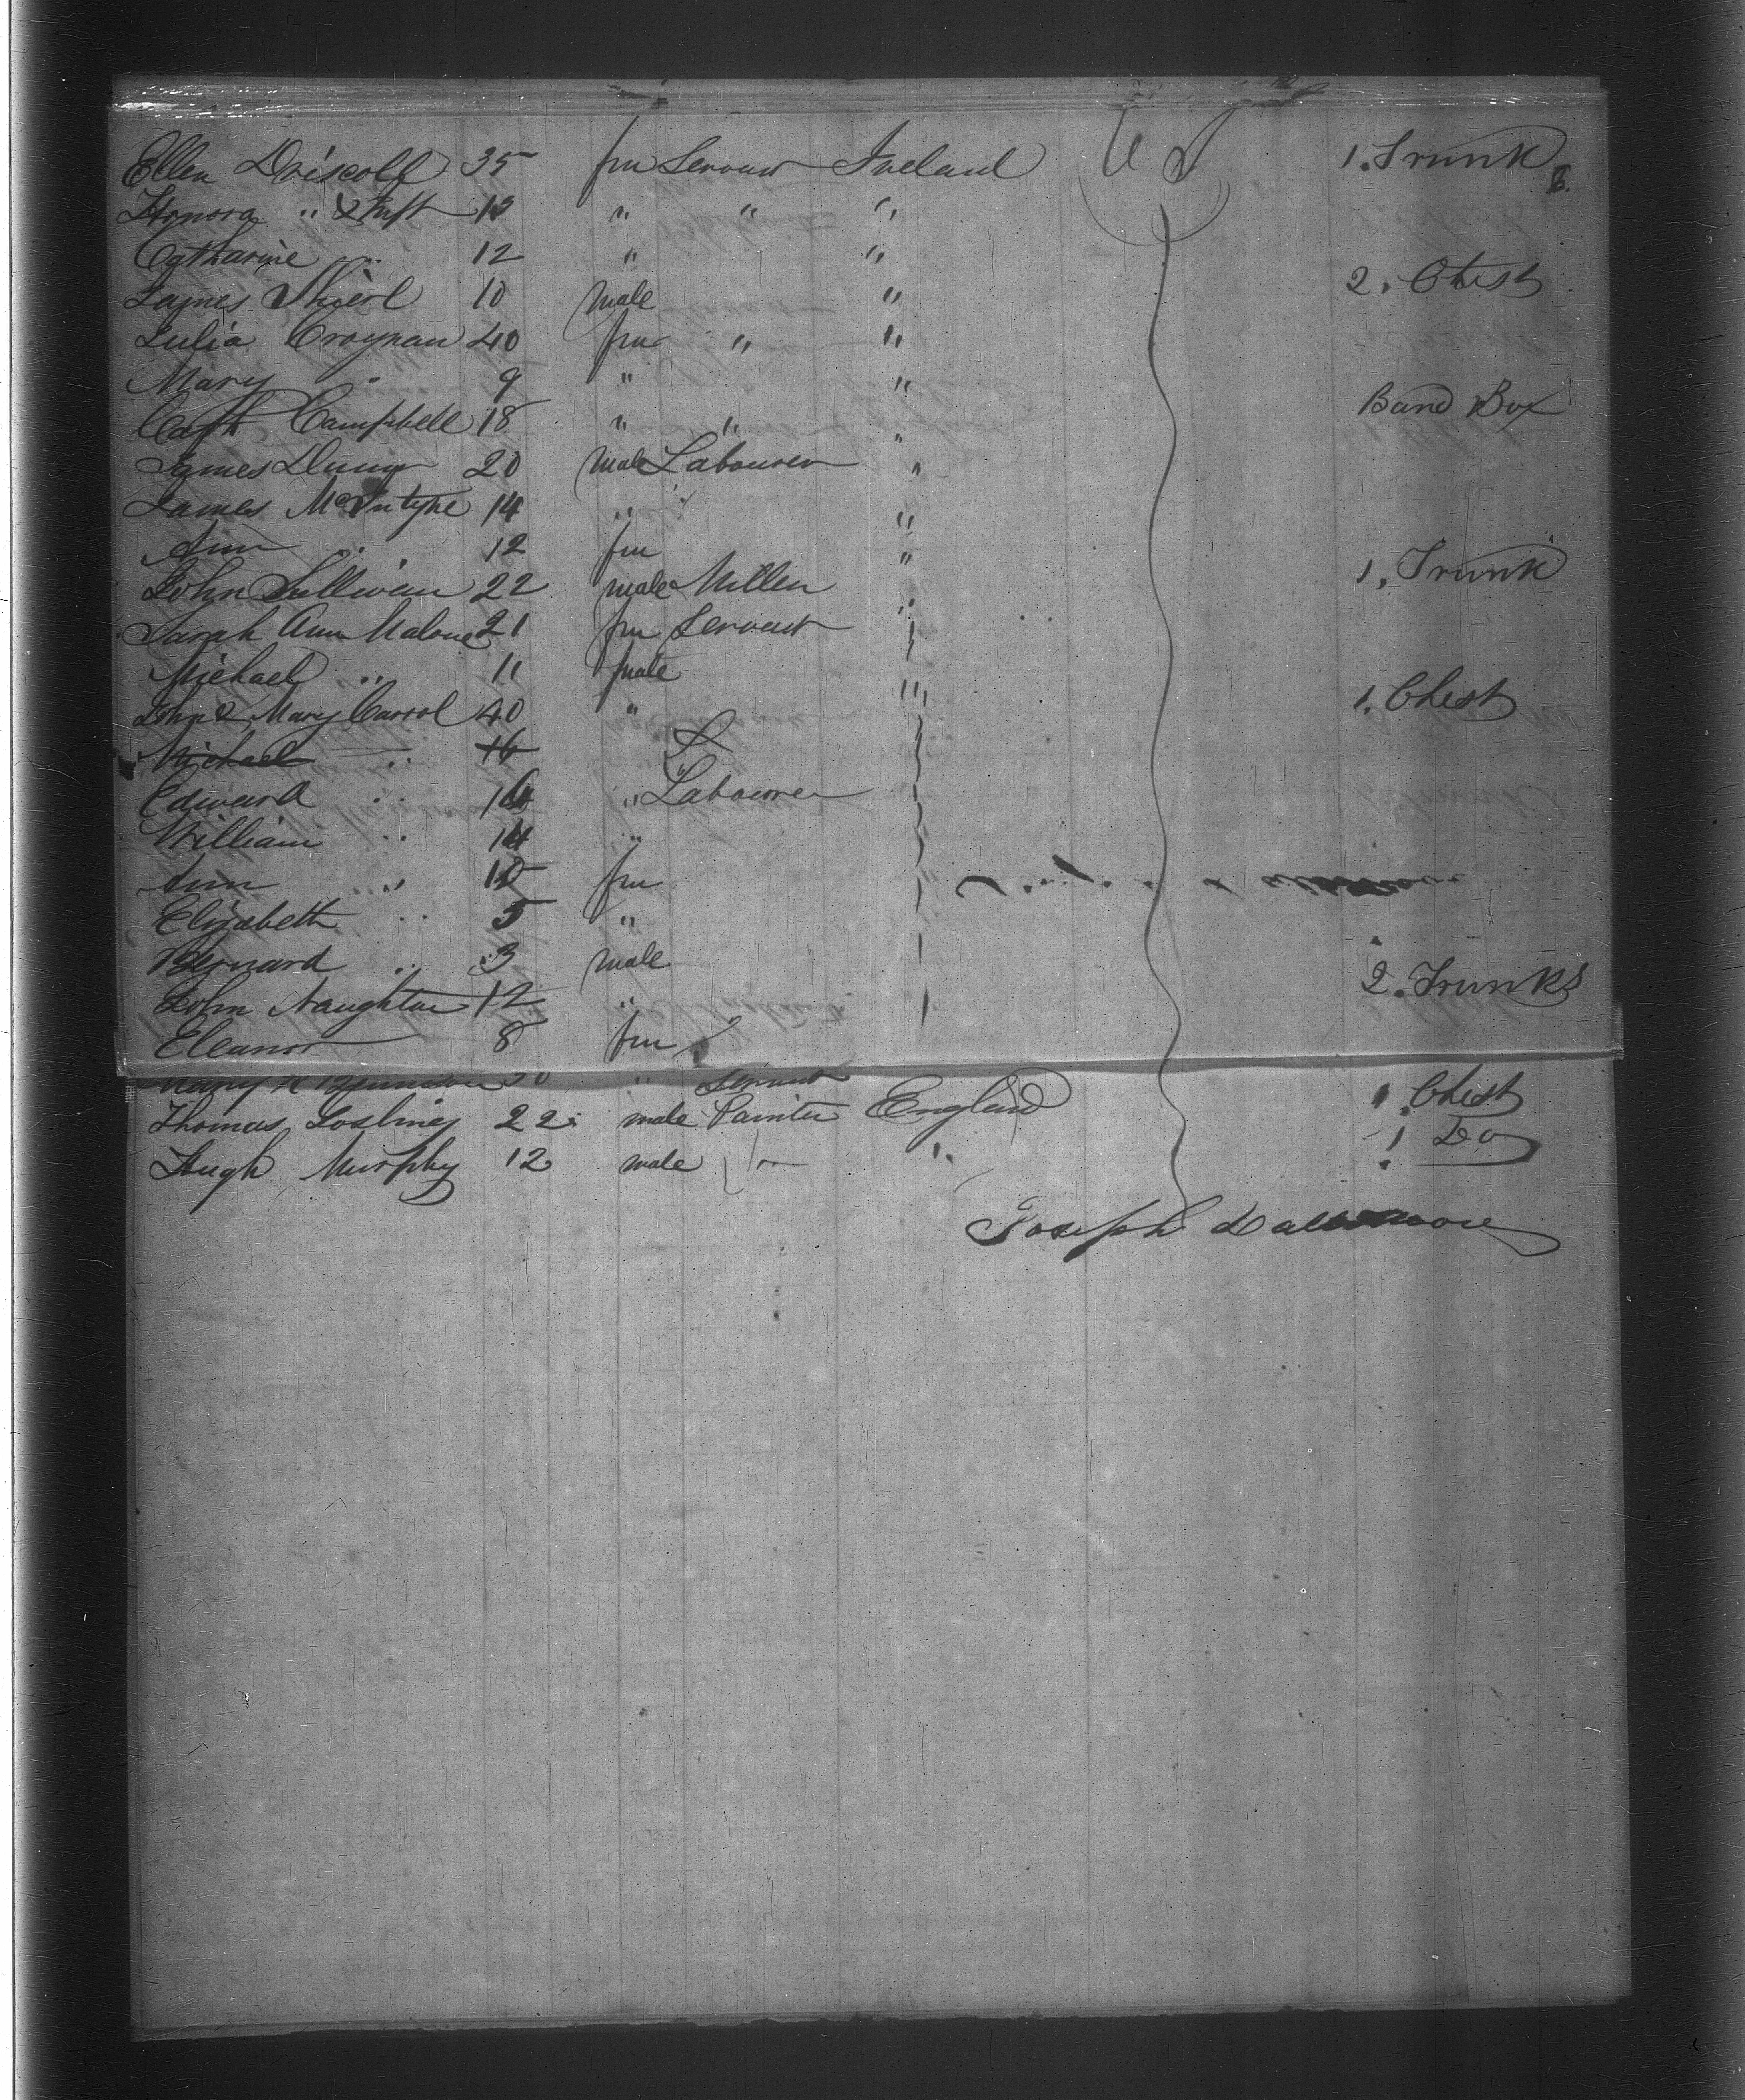 Ellen Driscoll 35 fm Servant Ireland U S 1. Trunk
Honora " & Inft 13 " " "
Catharine " 12 " "
James 10 male " 2. Chest
Julia Croynan 40 fm " "
Mary " 9 " "
Cath Campbell 18 " " " Band Box
James Dunn 20 male Labourer "
James McIntyre 14 " "
Ann " 12 fm "
John Sullivan 22 male Miller " 1. Trunk
Sarah Ann Malone 21 fm Servant "
Michael " 11 male "
John & Mary Carrol 40 " 1. Chest
Michael " 16
Edward " 16 " Labourer
William " 14 "
Ann " 10 fm
Elizabeth " 5 "
Bernard " 3 male
John Naughton 12 " 2. Trunks
Eleanor 8 fm
Mary 30 " Servant
Thomas 22 male Painter England 1. Chest
Hugh Murphy 12 male " 1 Do
Joseph